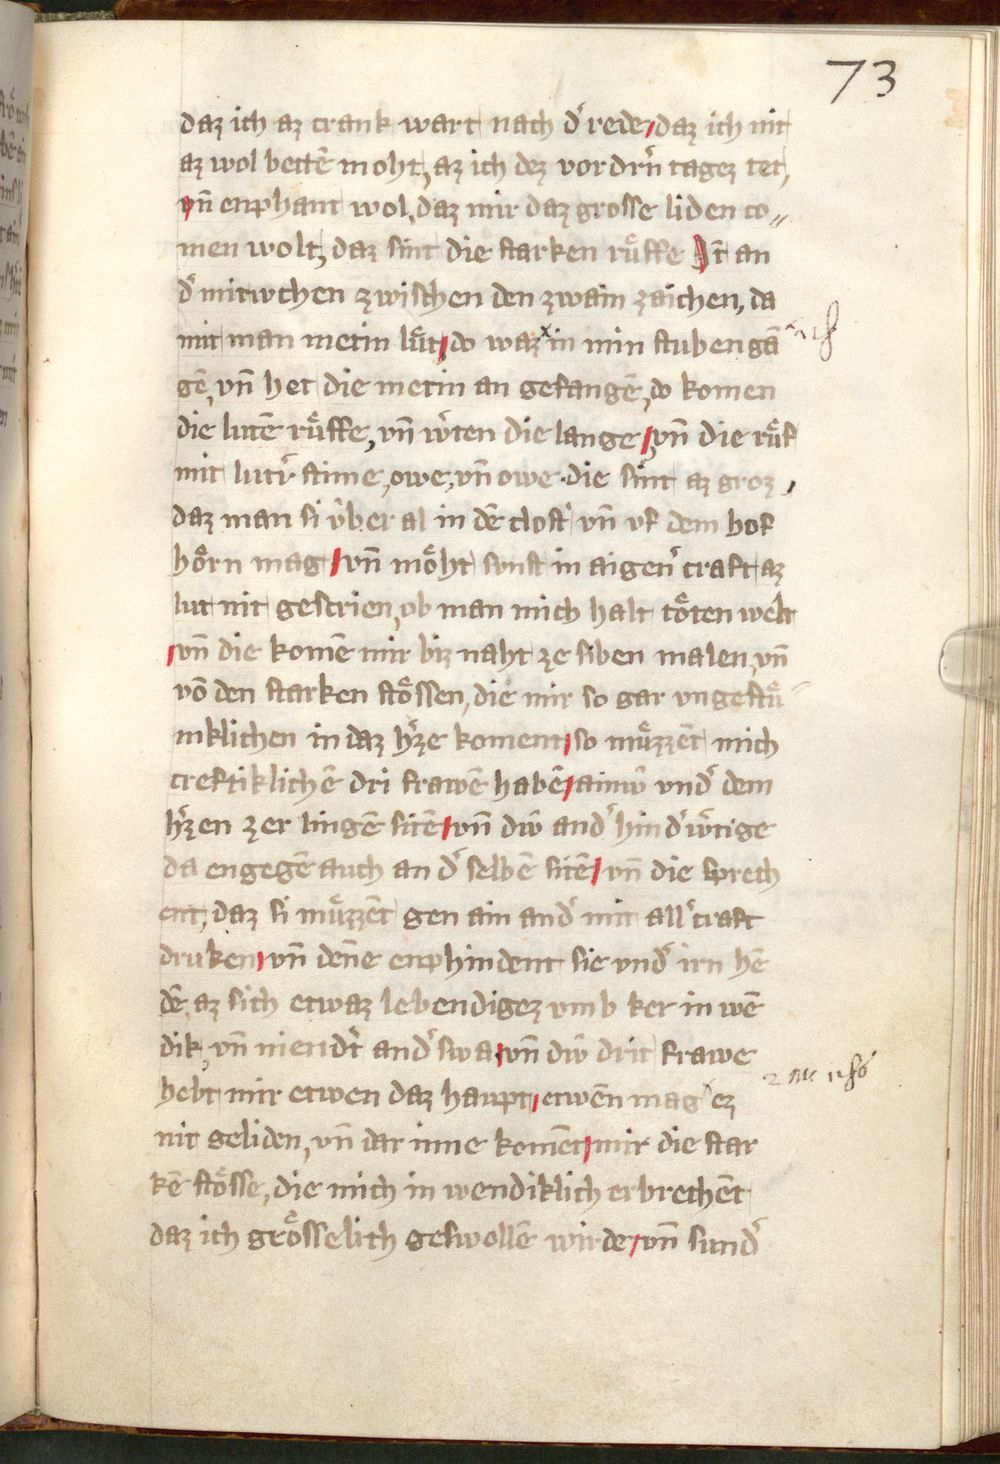 73
daz ich az crank wart nach d͛ rede, daz ich nit
az wol bettē moht, az ich dez vordrn͛ tagez tet,
vn̄ enphant wol, daz mir daz grosse liden co„
men wolt, daz sint die starken ruͤffe It̄ an
d͛ mitwchen zwischen den zwain zaichen, da
mit man metin luͤt, do waz ˣ in min stuben gā
gē, vn̄ het die metin an gefangē, do komen
die lutē ruͤffe, vn̄ w͛ten die lange, vn̄ die ruͤf
mit lutr͛ stime, owe, vn̄ owe · die sint az groz,
daz man si v̂ber al in dē clost͛ vn̄ vf dem hof
hoͤrn mag, vn̄ moͤht svnst in aigen͛ craft az
lut nit geschrien, ob man mich halt toͤten welt
, vn̄ die komē mir biz naht ze siben malen, vn̄
vō den starken stoͤssen, die mir so gar vngestuͤ
mklichen in daz h͛ze koment, so muͤzzēt mich
creftiklichē dri frawē habē, ainiv̂ vnd͛ dem
h͛zen zer lingē sitē, vn̄ div̂ and͛ hind͛w͛tige
da engegē auch an d͛ selbē sitē, vn̄ die sprech
ent, daz si muͤzzēt gen ain and͛ mit all͛ craft
druken, vn̄ den̄e enphindent sie vnd͛ irn hē
dē, az sich etwaz lebendigez vmb ker in wē
dik, vn̄ niendr͛t and͛swa, vn̄ div̂ drit frawe
hebt mir etwen daz haupt, etwēn mag ˣ ez
nit geliden, vn̄ dar inne komēt, mir die star
kē stoͤsse, die mich in wendiklich erbrechēt
daz ich groͤsselich geswollē wirde, vn̄ sund͛